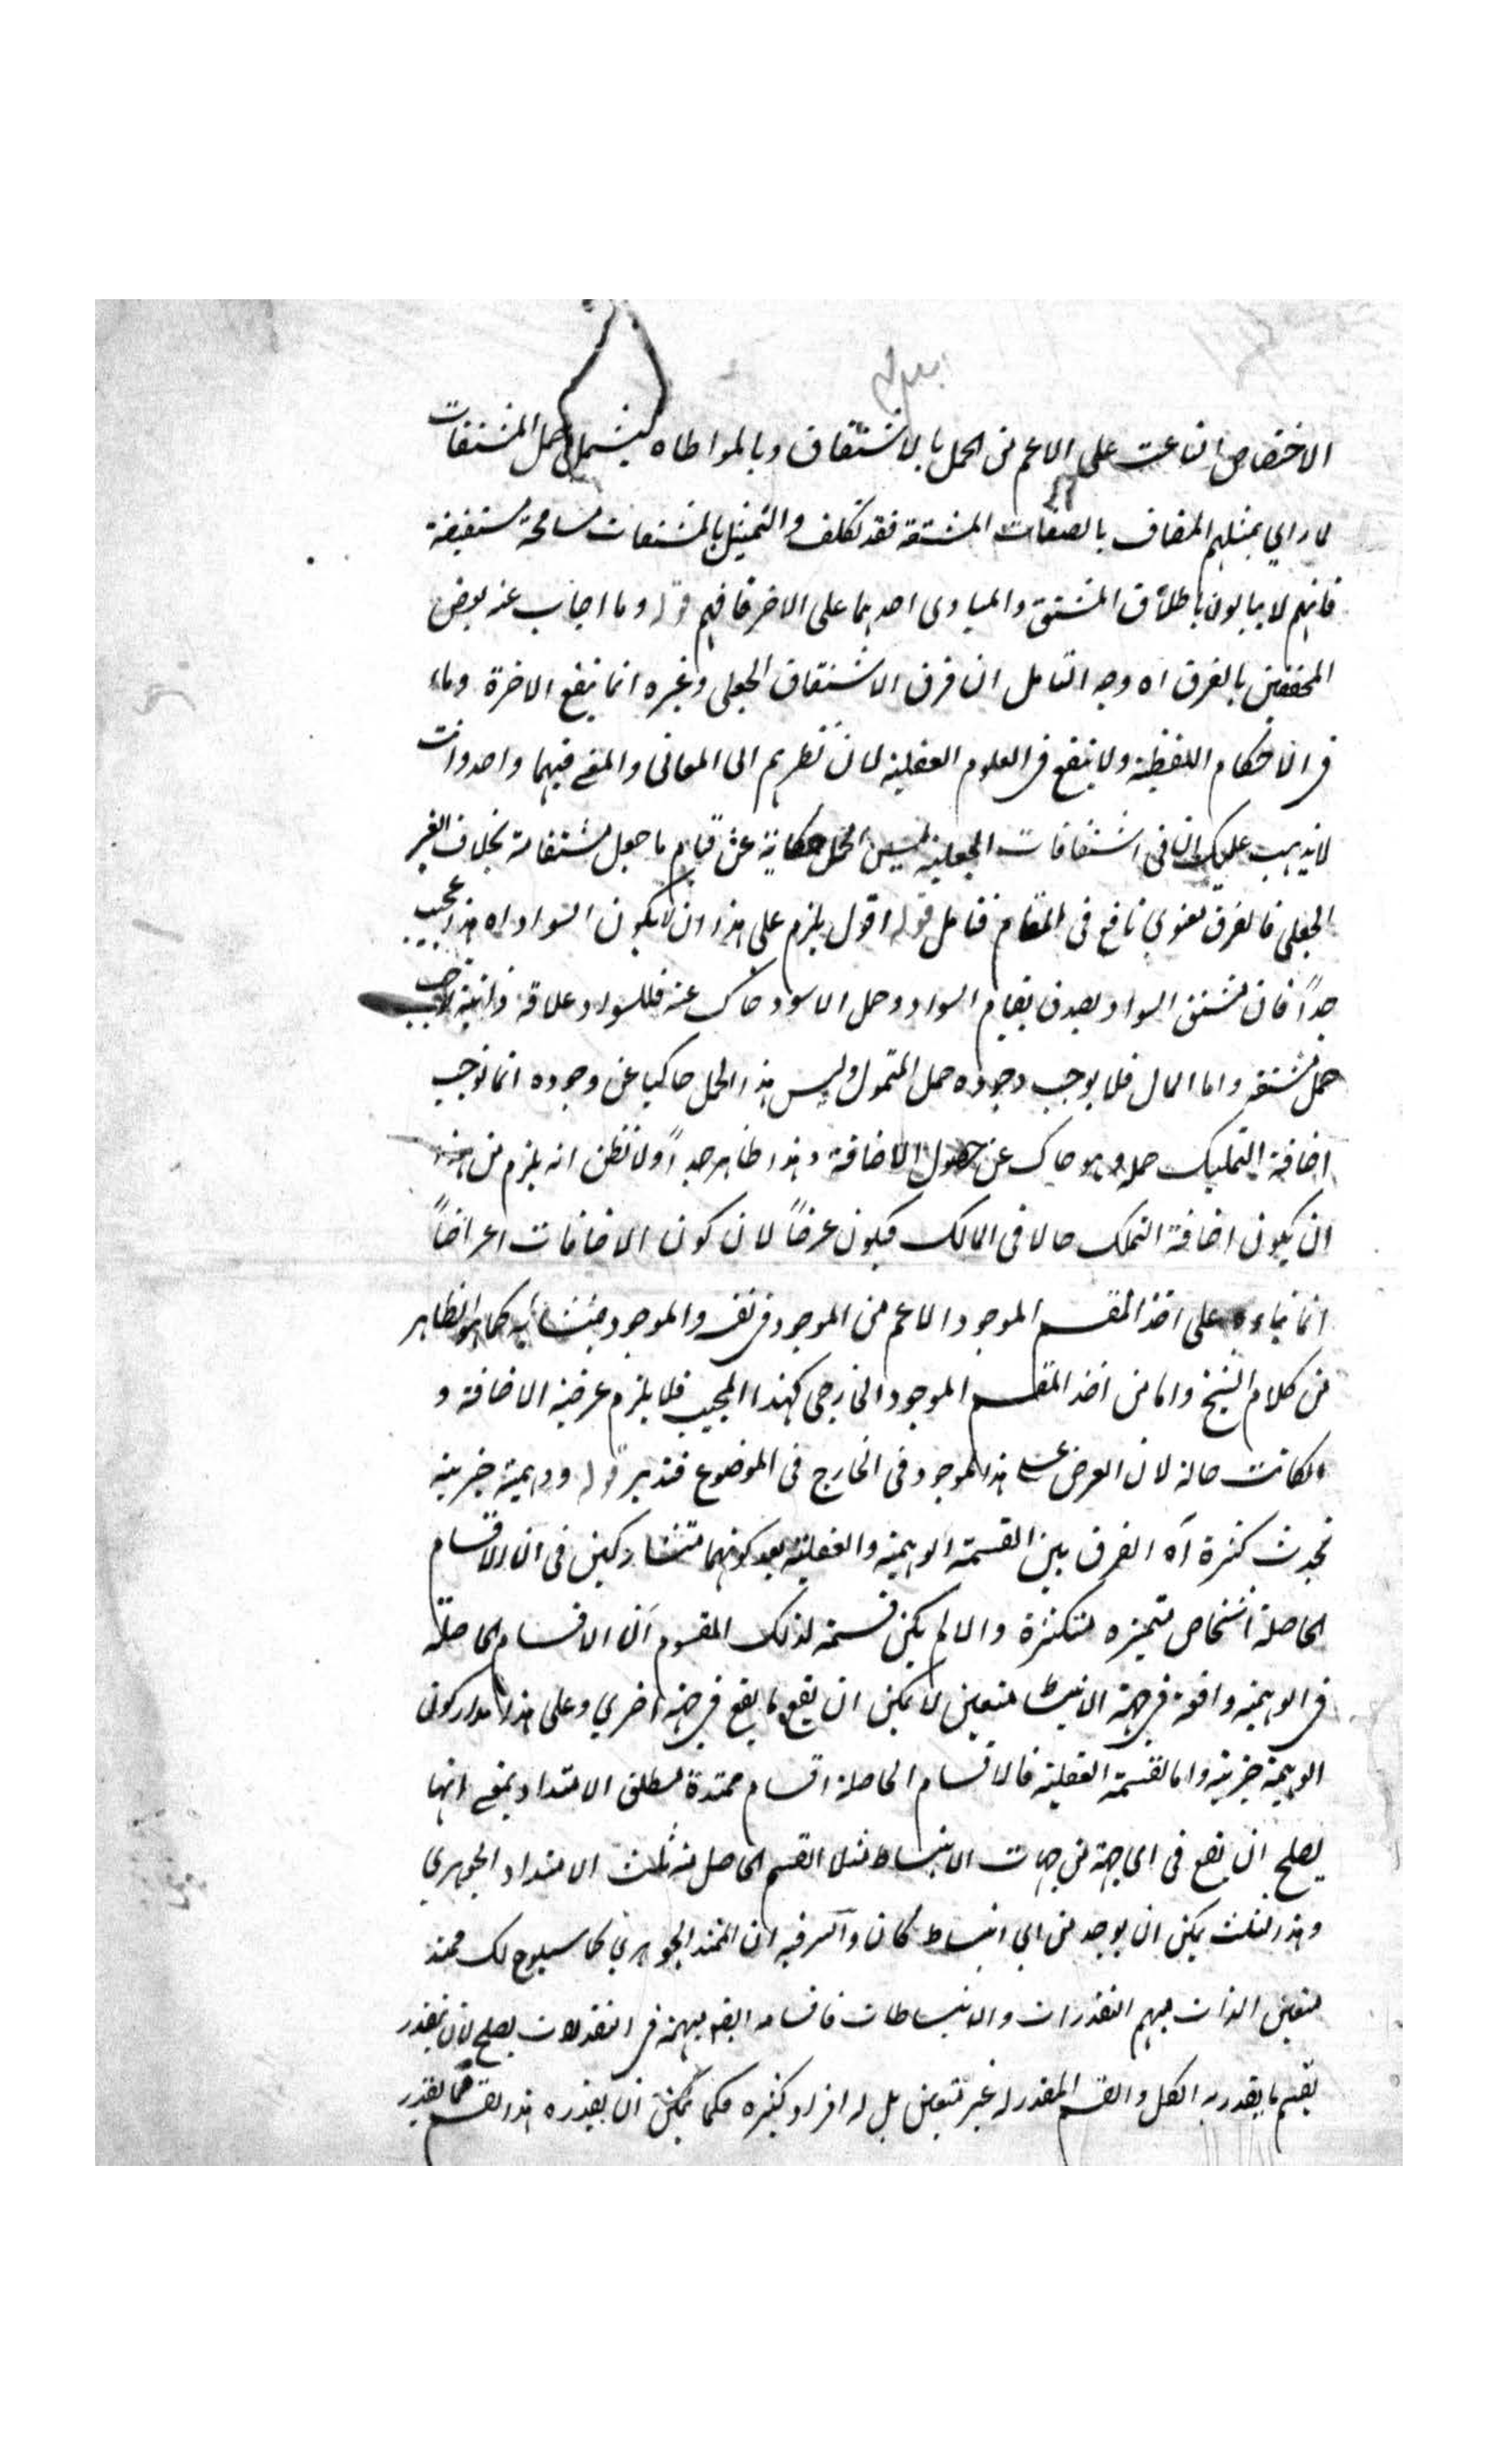 الاختصاص الناعت على الاعم من الحمل بالاشتقاق وبالمواطاه ليشمل حمل المشتقات
لما راي تمثيلهم المضاف بالصفات المشتقة فقد تكلف والتمثيل بالمشتقات مسامحة مستفيضة
فانهم لا يبالون باطلاق المشتق والمبادى احدهما على الاخر فافهم قوله وما اجاب عنه بعض
المحققين بالفرق اه وجه التامل ان فرق الاشتقاق الجعلى وغيره انما ينفع الاخرة وماء
فى الاحكام اللفظية ولا ينفع فى العلوم العقلية لان نظرهم الى المعانى والمعنى فيهما واحد وانت
لا يذهب عليك ان فى اشتقاقات الجعلية ليس الحمل حكاية عن قيام ما جعل مشتقا منه بخلاف الغير
الجعلى فالفرق معنوي نافع فى المقام فتامل قوله اقول يلزم على هذا ان لا يكون السواد اه هذا عجيب
جداً فان مشتق السواد يصدق بقيام السواد وحمل الاسود حاك عنه فللسواد علاقة
حمل مشتقه واما المال فلا يوجب وجوده حمل المتمول وليس هذا الحمل حاكيا عن وجوده انما توجب
اضافة التمليك حمله وهو حاك عن حصول الاضافة وهذا ظاهر جداً ولا تظن انه يلزم من هذا
ان يكون اضافة التملك حالا فى المالك فيكون عرضاً لان كون الاضافات اعراضاً
انما بناءه على اخذ المقسم الموجود الاعم من الموجود فى نفسه والموجود بمنشائه كما هو الظاهر
من كلام الشيخ واما من اخذ المقسم الموجود الخارجى كهذا المجيب فلا يلزم عرضية الاضافة و
ان كانت حالة لان العرض على هذا الموجود فى الخارج فى الموضوع فتدبر قوله ووهمية جزيية
تحدث كثرة آه الفرق بين القسمة الوهمية والعقلية بعد كونهما متشاركين فى ان الاقسام
الحاصلة اشخاص متميزه متكثرة والا لم يكن قسمة لذلك المقسوم ان الاقسام الحاصلة
فى الوهمية واقعة فى جهة الانبساط متعين لا يمكن ان يقع ما يقع فى جهة اخري وعلى هذا مدار كون
الوهمية جزيية واما القسمة العقلية فالاقسام الحاصلة اقسام ممتدة لمطلق الامتداد بمعنى انها
يصلح ان يقع فى اى جهة من جهات الانبساط مثلا القسم الحاصل منه ثلث الامتداد الجوهري
وهذا الثلث يمكن ان يوجد من اي انبساط كان والسر فيه ان الممتد الجوهري كما سيلوح لك ممتد
متعين الذات مبهم التقدرات والانبساطات فاقسامه ايضا مبهمة فى التقدرات يصلح لان يتقدر
بقسم ما يتقدر به الكل والقسم المقدر له غير متعين بل له افراد كثيره فكما يمكن ان يقدره هذا القسم كما يقدر